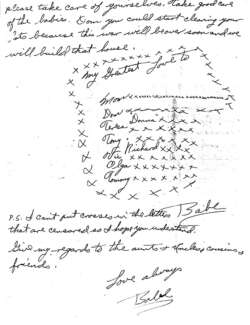 please take care of yourselves. Take good care
of the babies. Dom you could start clearing your
because this war will be over soon and we
will build that house.
x x x x x x x x x x x x x
My Greatest Love to
Mom x x x x x x x x x
Dom x x x x x x x x
Tess x x x x x x x
Tony x x x x x x x
Vic Richard x x x x x
Olga x x x x x x x
Tommy x x x x x x x
P.S. I can't put crosses in the letters Babe
that are censored so I hope you understand.
Give my regards to the aunts & Uncles, cousins,
friends.
Love always